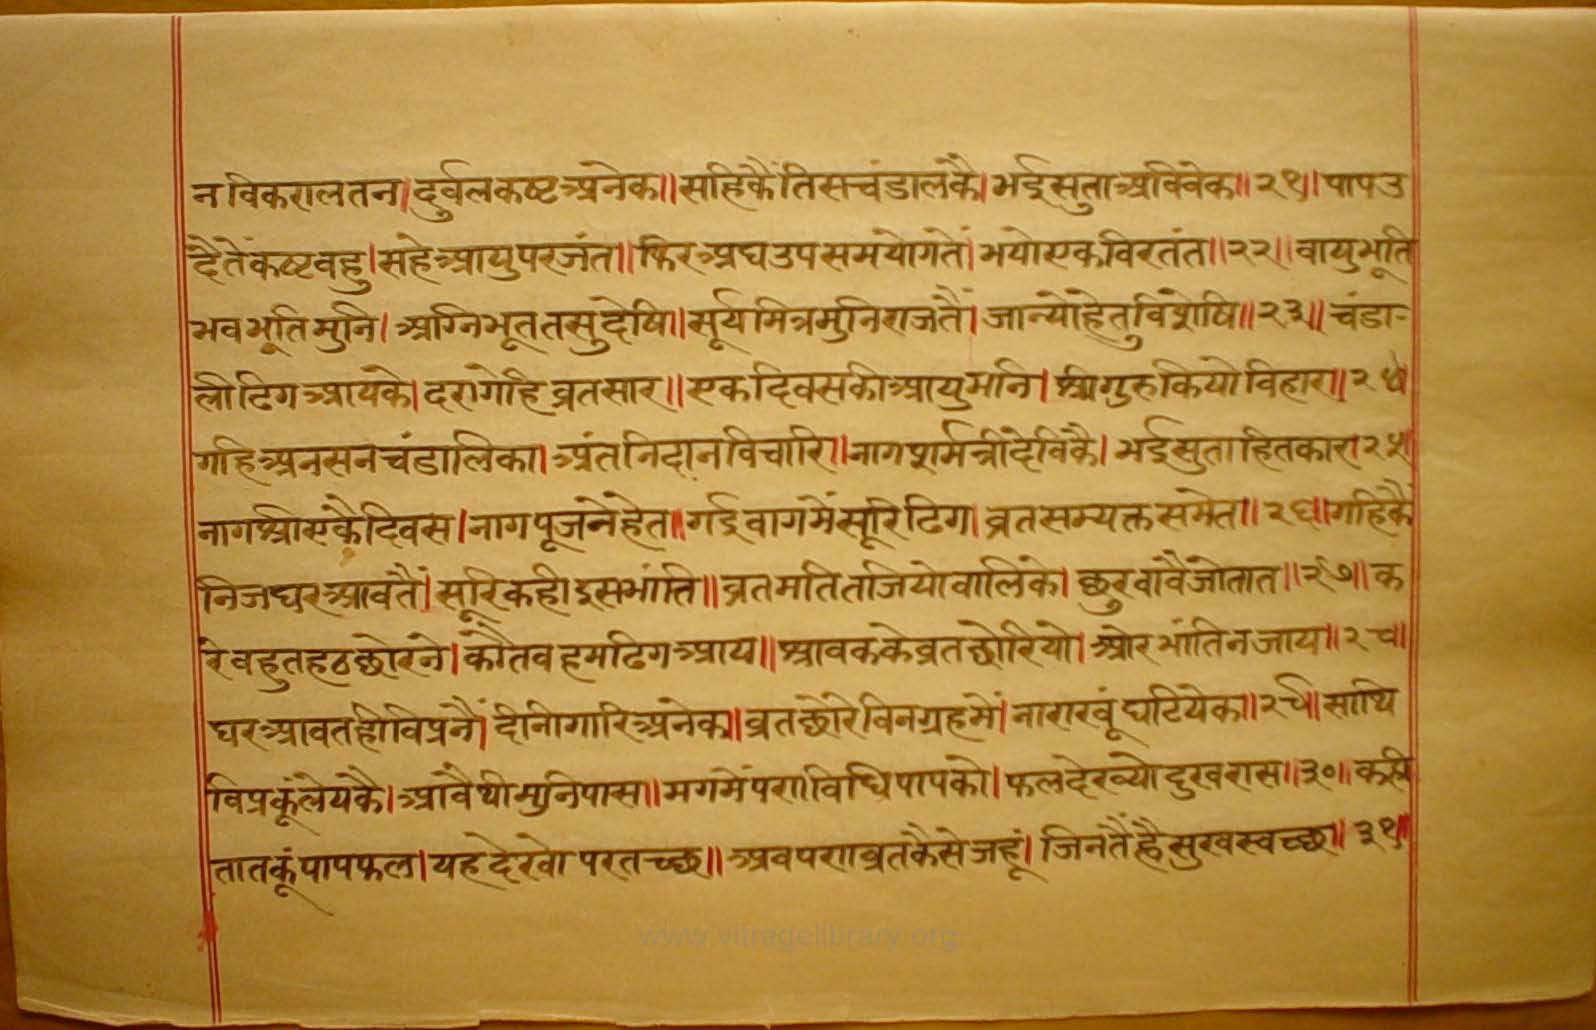 न विकरालतन। दुर्वलकष्टअनेक॥ सहिकैं तिसचंडालकै। भईसुताअविवेक॥ २१। पापउ
दैतेंकष्टवहु। सहेआयुपरजंत॥ फिरअघउपसमयोगतें। भयोएकविरतंत॥ २२॥ वायुभूति
भवभूतिमुनि। अग्निभूततसुदेषि॥ सूर्यमित्रमुनिराजतैं। जान्योहेतुविशेषि॥ २३॥ चंडा-
लीढिगआयके। दरागेहिव्रतसार॥ एकदिवसकीआयुमानि। श्रीगुरुकियोविहार॥ २४
गहिअनसनचंडालिका। अंतनिदानविचारि॥ नागशर्मत्रीदेविकै। भईसुताहितकार। २५
नागश्रीएकैदिवस। नागपूजनेहेत॥ गईवागमेंसूरिढिग। व्रतसम्यक्तसमेत॥ २६॥ गहिकै
निजघरआवतैं। सूरिकहीइसभांति॥ व्रतमतितजियोवालिके। छुरवावैजोतात॥ २७॥ क
रेवहुतहठछोरने। कौतवहमढिगआय॥ श्रावककेव्रतछोरियो। ओरभांतिनजाय॥ २८।
घरआवतहीविप्रनैं। दीनीगारिअनेक॥ व्रतछोरेविनग्रहमें। नाराखूंघटियेक॥ २९॥ साथि
विप्रकूंलेयकै। आवैथीमुनिपास॥ मगमेंपराविधिपापको। फलदेख्योदुखरास॥ ३०॥ कही
तातकूंपापफल। यहदेखोपरतच्छ॥ अवपराव्रतकैसेजहूं। जिनतैंहैसुखस्वच्छ॥ ३१॥
www.vitragelibrary.org